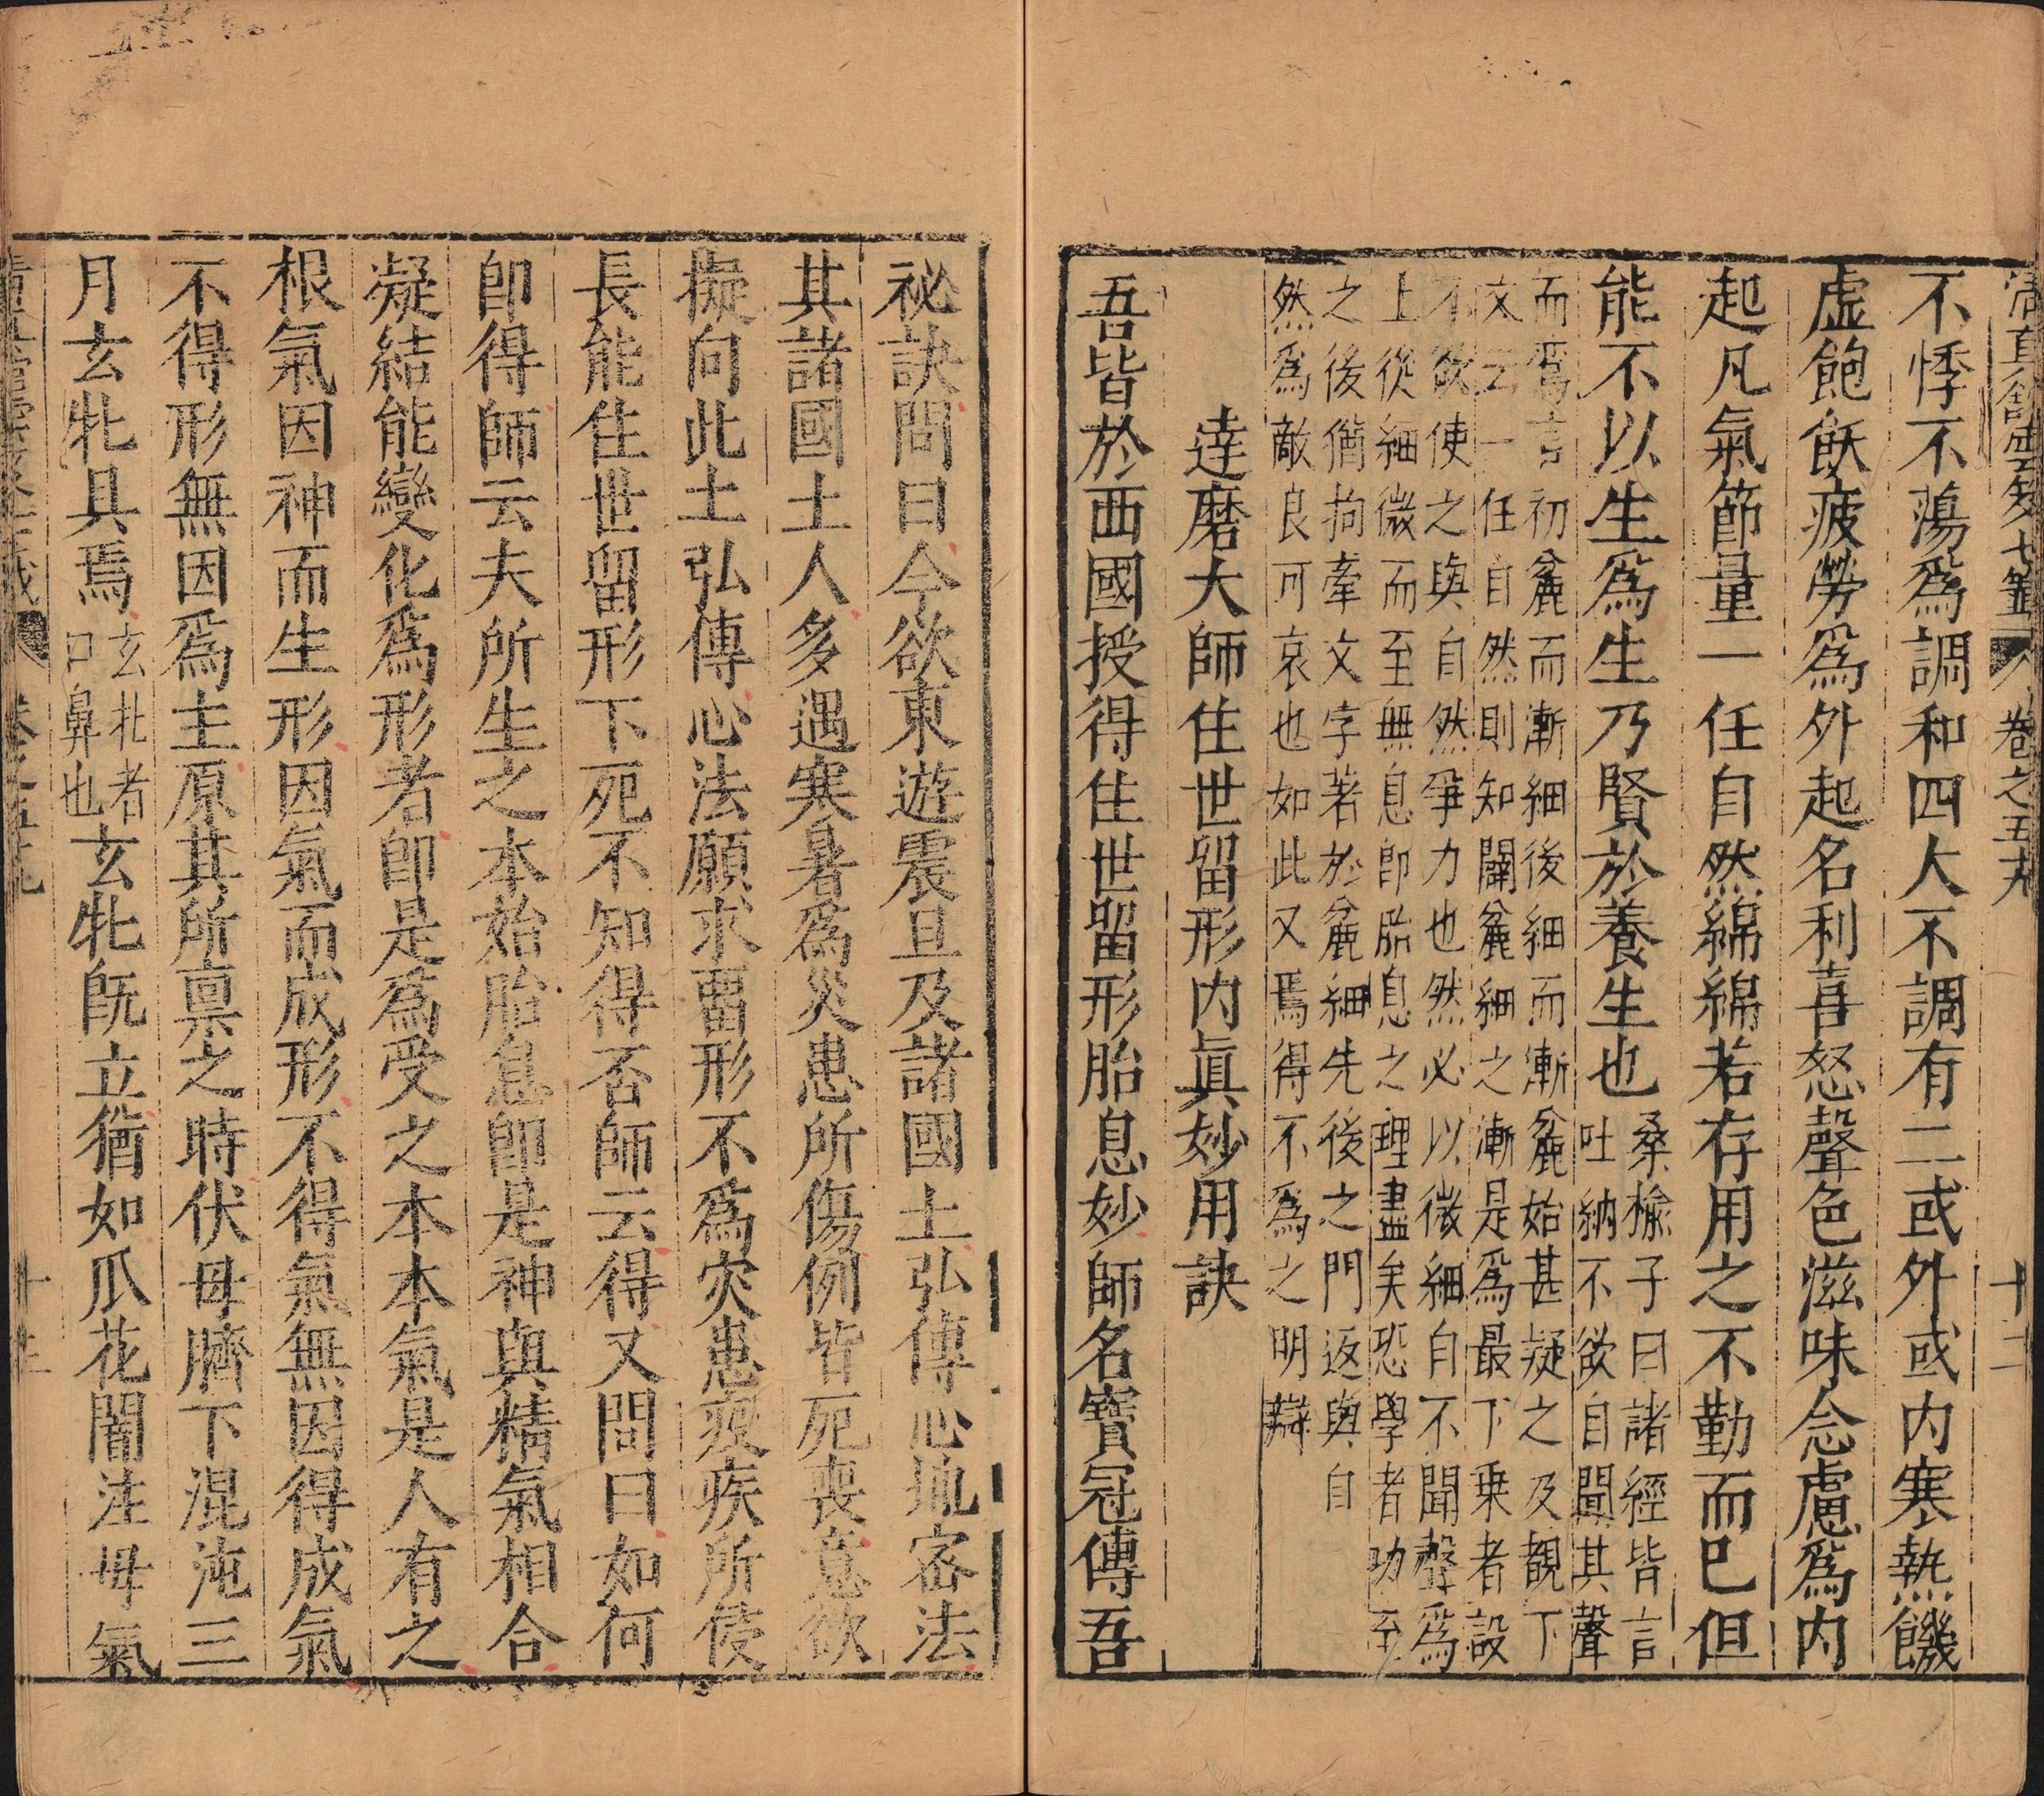 清真館雲笈七籖 卷之五九 十二
不悸不蕩爲調和四大不調有二或外或内寒熱饑
虛飽飫疲勞爲外起名利喜怒聲色滋味念慮爲内
起凡氣節量一任自然綿綿若存用之不勤而已但
能不以生爲生乃賢於養生也
桑榆子曰諸經皆言
吐納不欲自聞其聲
而焉言初麄而漸細後細而漸麄始甚疑之及覩下
文云一任自然則知闡麄細之漸是爲最下乗者設
不欲使之與自然爭力也然必以微細自不聞聲爲
上從細微而至無息即胎息之理盡矣恐學者功至
之後猶拘牽文字著於麄細先後之門返與自
然爲敵良可哀也如此又焉得不爲之明辯
達磨大師住世留形内眞妙用訣
吾皆於西國授得住世留形胎息妙師名寶冠傳吾
祕訣問曰今欲東遊震旦及諸國土弘傳心地密法
其諸國土人多遇寒暑爲災患所傷例皆死喪意欲
擬向此土弘傳心法願求畱形不爲灾患疫疾所侵
長能住世留形下死不知得否師云得又問曰如何
即得師云夫所生之本始胎息即是神與精氣相合
凝結能變化爲形者即是爲受之本本氣是人有之
根氣因神而生形因氣而成形不得氣無因得成氣
不得形無因爲主原其所禀之時伏母臍下混沌三
月玄牝具焉
玄牝者
口鼻也
玄牝旣立猶如爪花闇注母氣
十三